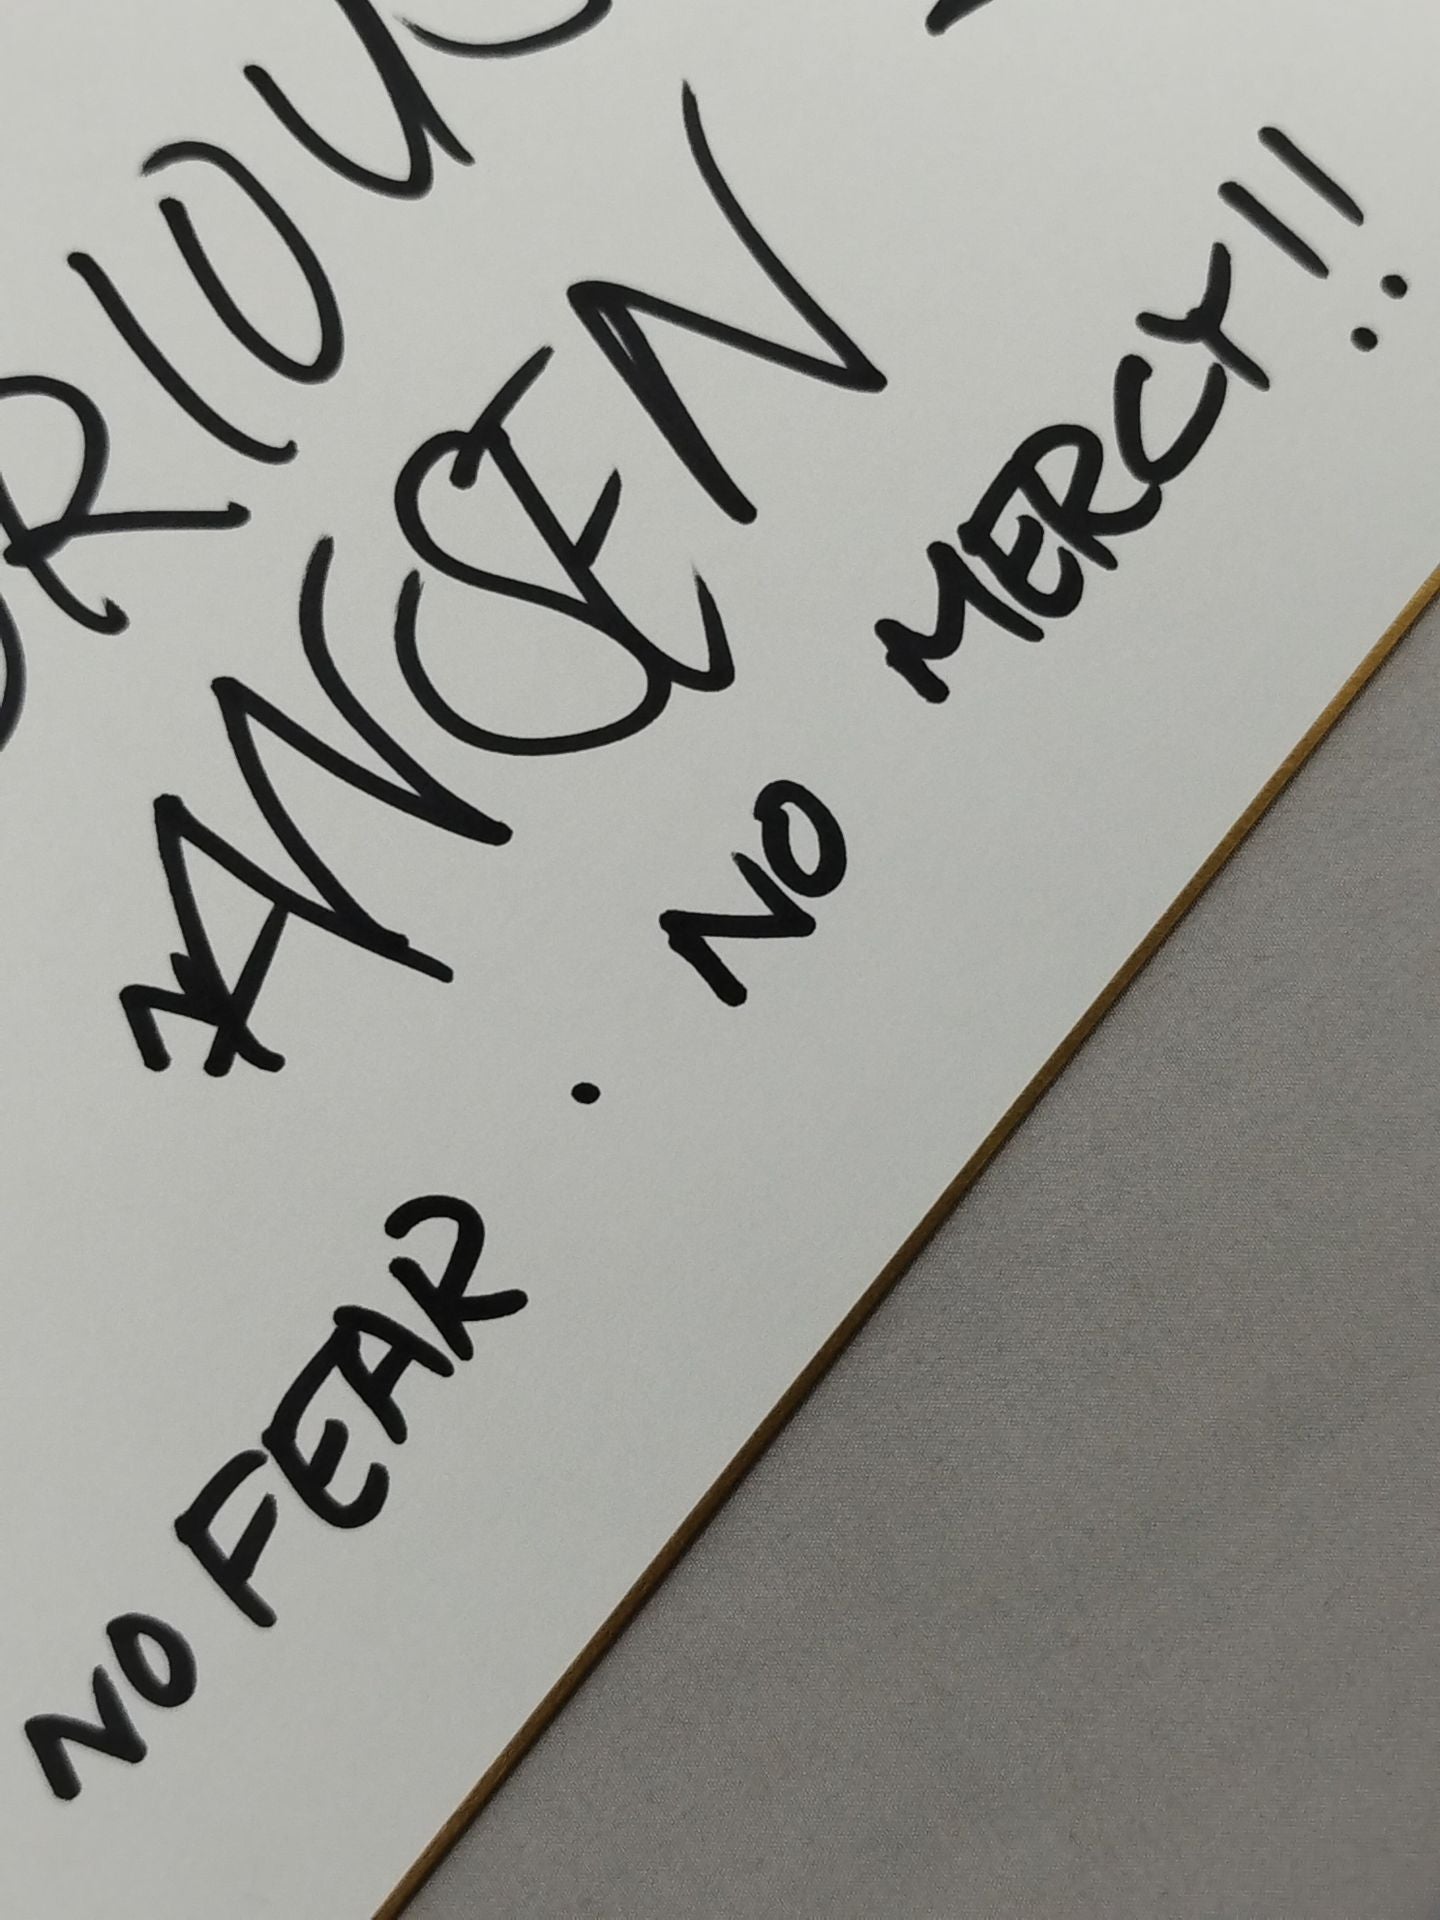 RIOU
ANSEN
NO FEAR. NO MERCY!!